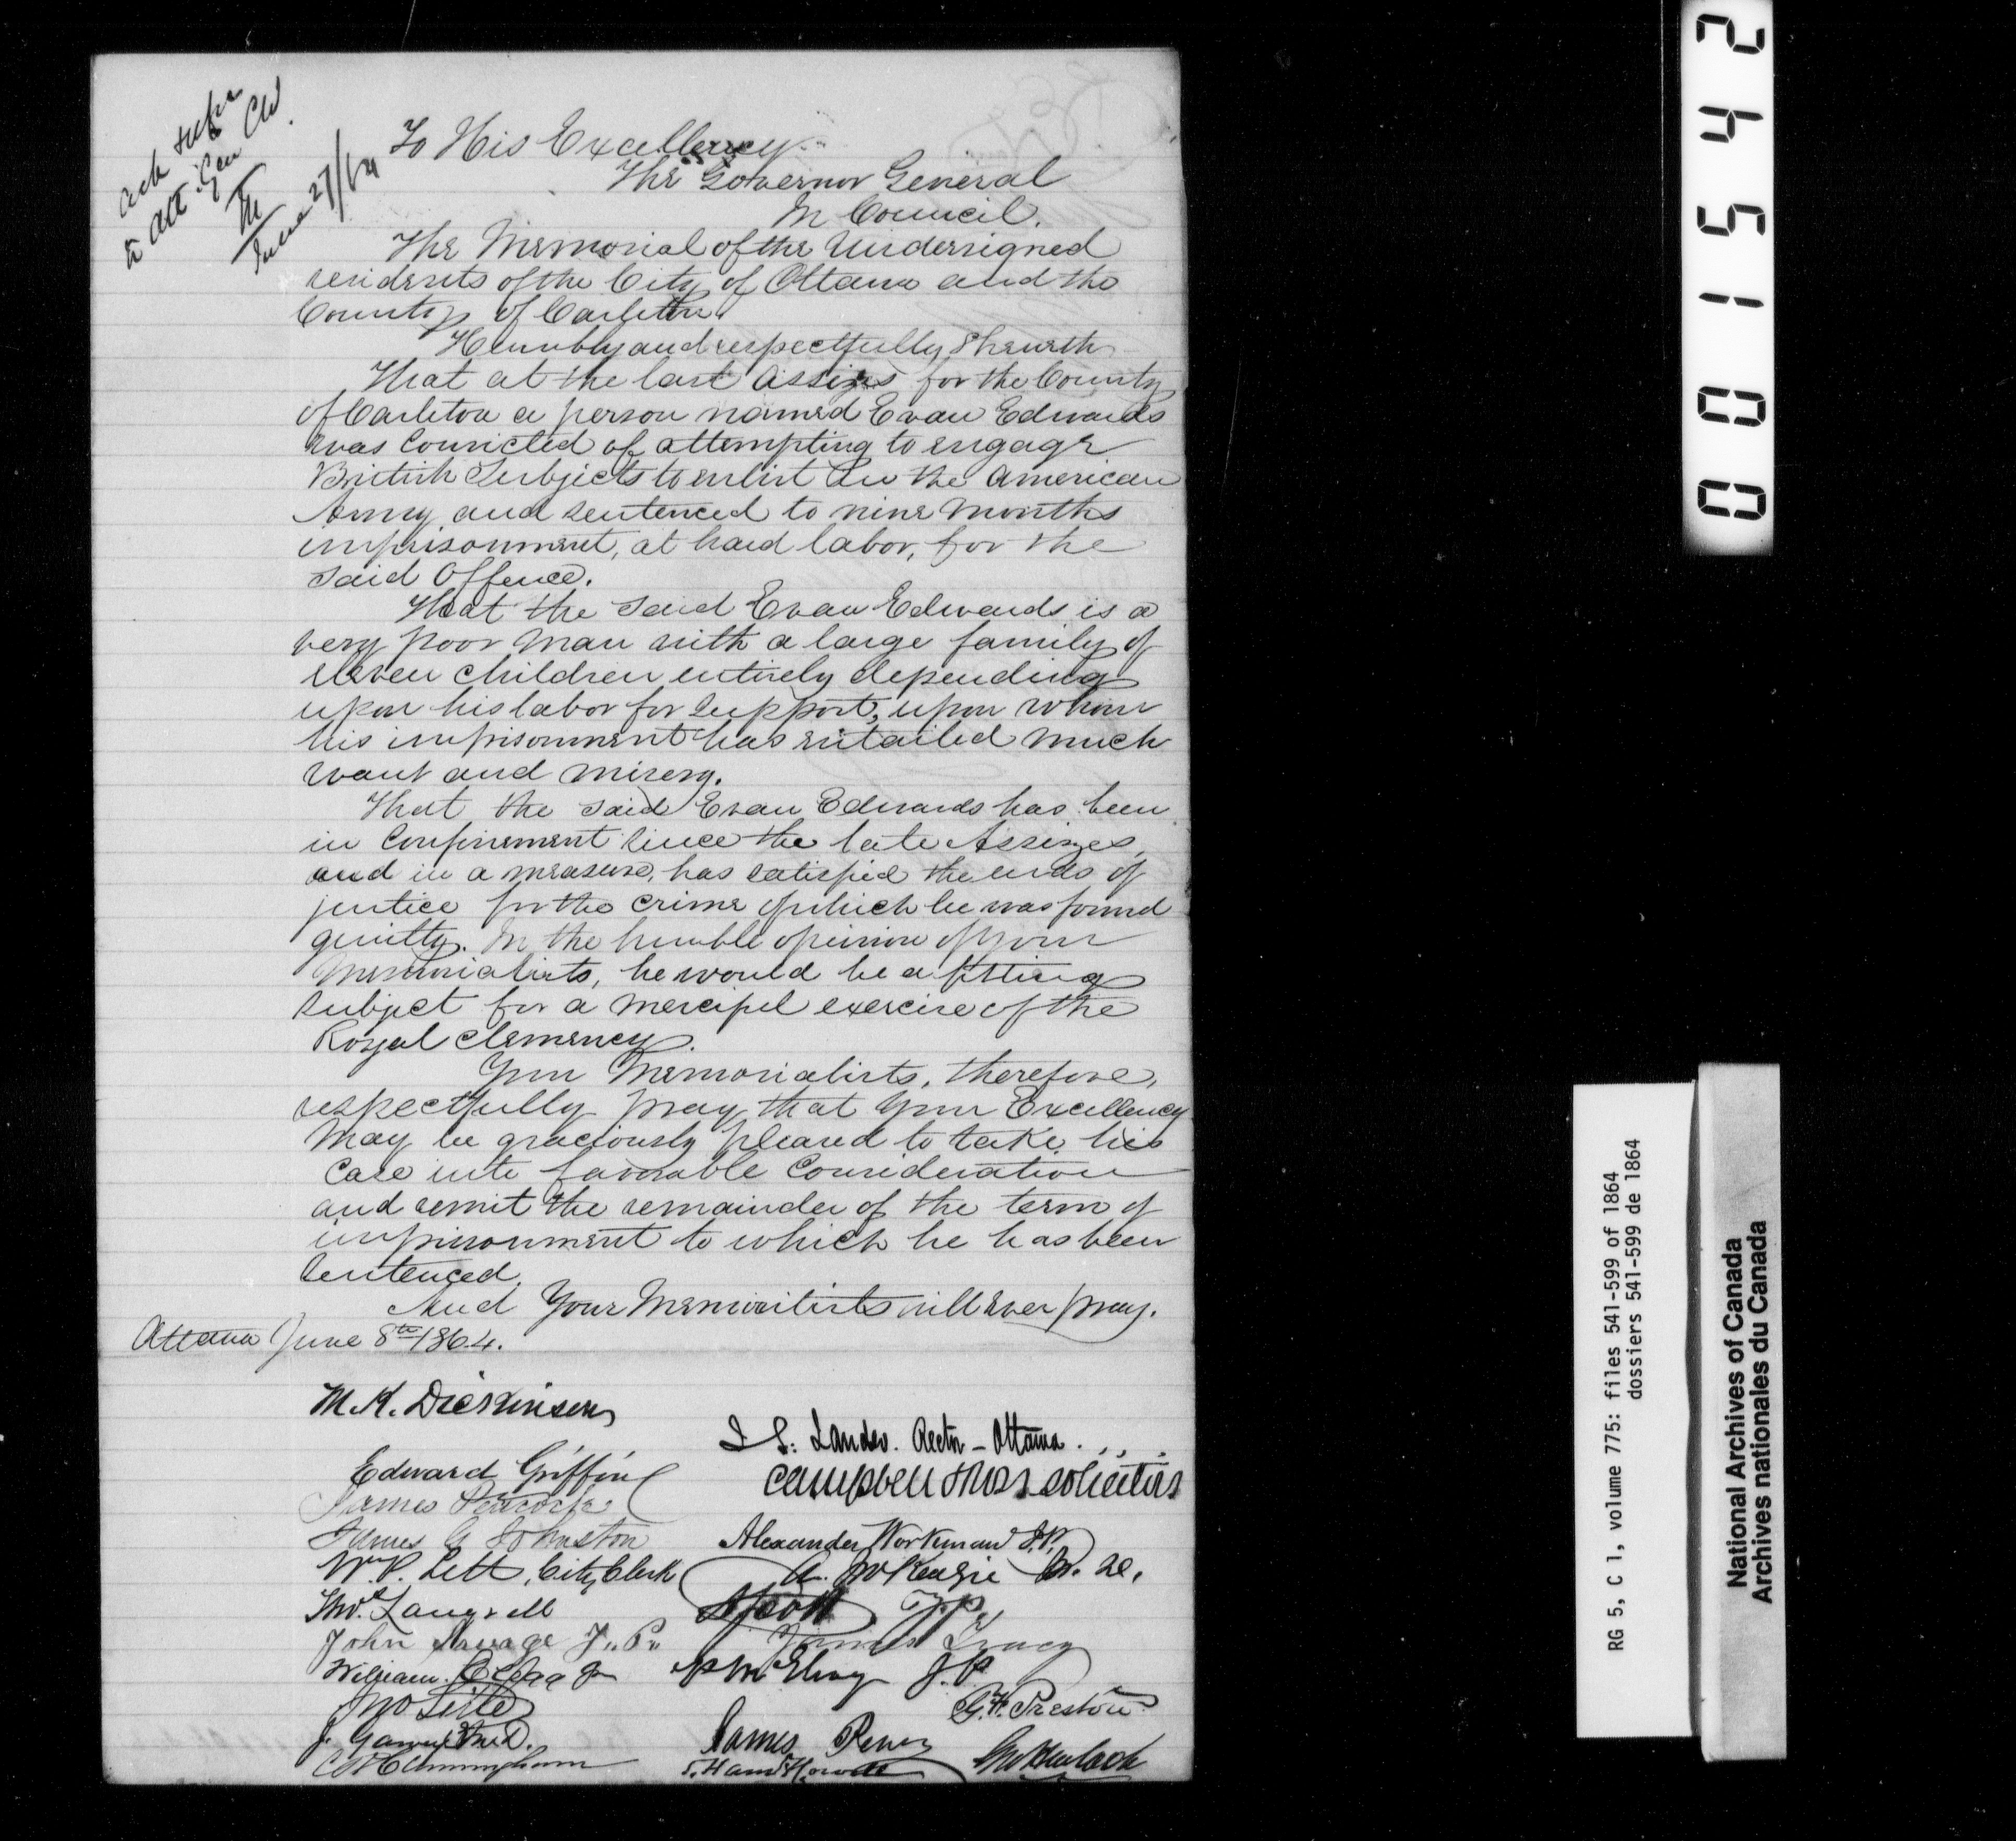 ack & refer
to Att. Gen CW.
June 27/64
To His Excellency
The Governor General
In Council.
The Memorial of the Undersigned
residents of the City of Ottawa and the
County of Carleton
Humbly and respectfully Sheweth
That at the last Assizes for the County
of Carleton a person named Evan Edwards
was Convicted of attempting to engage
British Subjects to enlist in the American
Army, and sentenced to nine months
imprisonment, at hard labor, for the
said Offence.
That the said Evan Edwards is a
very poor man with a large family of
eleven children entirely depending
upon his labor for support, upon whom
his imprisonment has entailed much
want and misery.
That the said Evan Edwards has been
in Confinement since the late Assizes,
and in a measure, has satisfied the ends of
justice for the crime of which he was found
guilty. In the humble opinion of your
Memorialists, he would be a fitting
subject for a merciful exercise of the
Royal Clemency.
Your Memorialists, therefore,
respectfully pray that Your Excellency
may be graciously pleased to take his
Case into favorable Consideration
and remit the remainder of the term of
imprisonment to which he has been
Sentenced.
And Your Memorialists will ever pray.
Ottawa June 8th 1864.
M. K. Dickinson
J S. Lauder. Rector - Ottawa
Edward Griffin
Campbell & Ross solicitors
James Peacock
James G Johnston
Alexander Workman J.P.
W. P. Lett, City Clerk
A. McKenzie
Thos. Langrell
R W Scott
John Savage J.P.
James Tracy
William Clegg
P McElroy J.P.
G. H. Preston
James Perry
J. Garvey M.D.
Cunningham
001542
RG 5, C 1, volume 775: files 541-599 of 1864
dossiers 541-599 de 1864
National Archives of Canada
Archives nationales du Canada